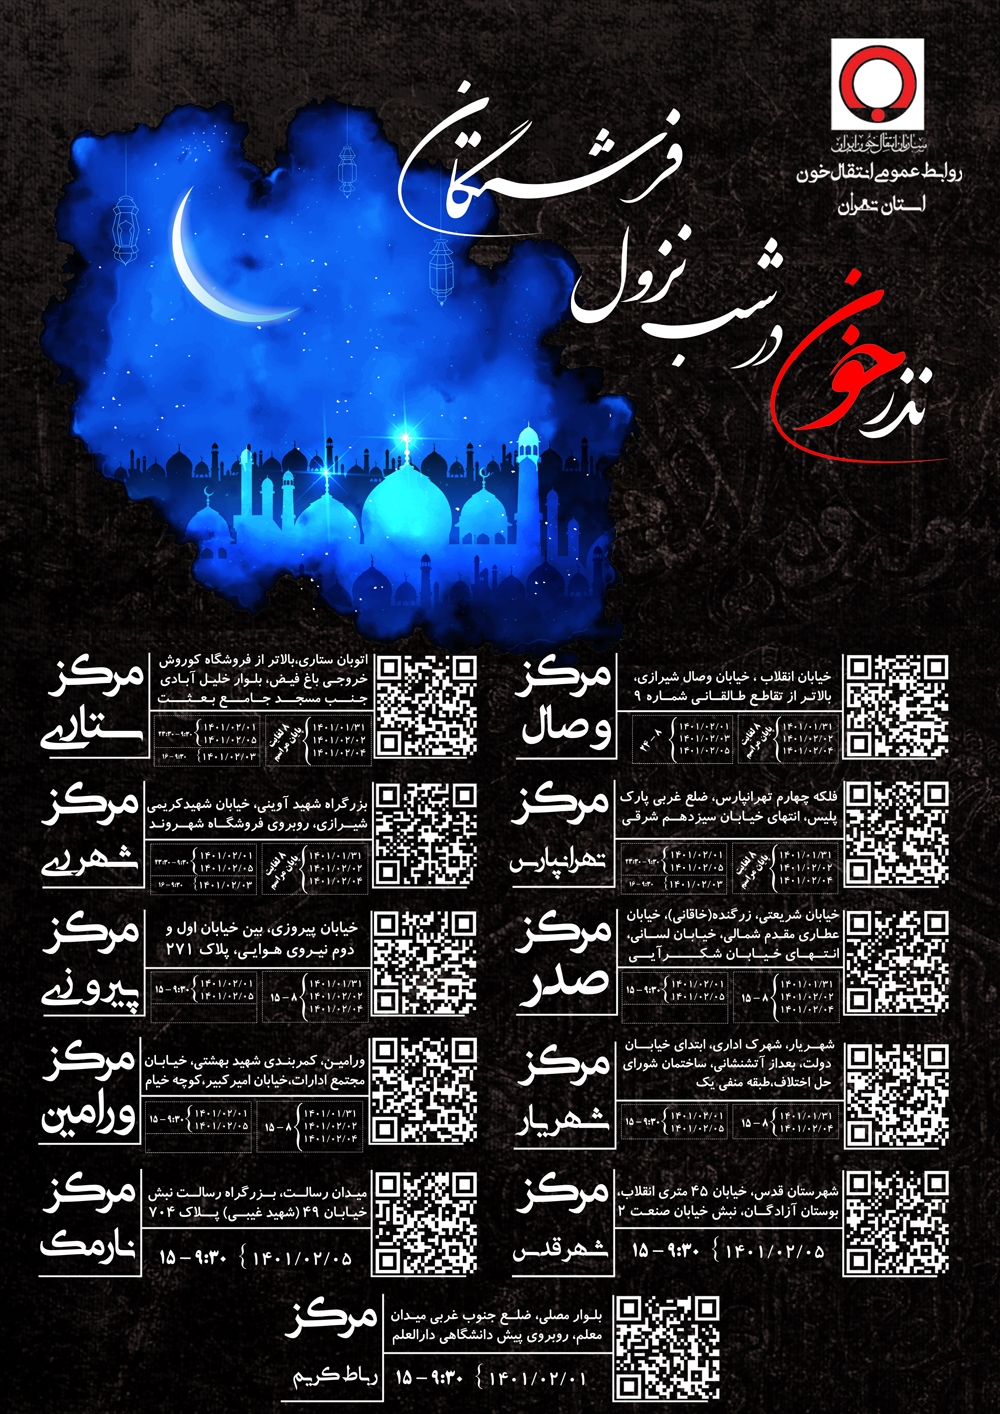 سازمان انتقال خون ایران
روابط عمومی انتقال خون
استان تهران
نذر خون
در شب نزول
فرشتگان
مرکز
وصال
خیابان انقلاب ، خیابان وصال شیرازی،
بالاتر از تقاطع طالقانی شماره ۹
۱۴۰۱/۰۱/۳۱
۱۴۰۱/۰۲/۰۲
۱۴۰۱/۰۲/۰۴
۸ لغایت
پایان مراسم
۱۴۰۱/۰۲/۰۱
۱۴۰۱/۰۲/۰۳
۱۴۰۱/۰۲/۰۵
۸ - ۲۴
مرکز
ستاری
اتوبان ستاری،بالاتر از فروشگاه کوروش
خروجی باغ فیض، بلوار خلیل آبادی
جنب مسجد جامع بعثت
۱۴۰۱/۰۱/۳۱
۱۴۰۱/۰۲/۰۲
۱۴۰۱/۰۲/۰۴
۸ لغایت
پایان مراسم
۱۴۰۱/۰۲/۰۱
۱۴۰۱/۰۲/۰۵
۹:۳۰ - ۲۳:۳۰
۱۴۰۱/۰۲/۰۳
۹:۳۰ - ۱۶
مرکز
تهرانپارس
فلکه چهارم تهرانپارس، ضلع غربی پارک
پلیس، انتهای خیابان سیزدهم شرقی
۱۴۰۱/۰۱/۳۱
۱۴۰۱/۰۲/۰۲
۱۴۰۱/۰۲/۰۴
۸ لغایت
پایان مراسم
۱۴۰۱/۰۲/۰۱
۱۴۰۱/۰۲/۰۵
۹:۳۰ - ۲۳:۳۰
۱۴۰۱/۰۲/۰۳
۹:۳۰ - ۱۶
مرکز
شهرری
بزرگراه شهید آوینی، خیابان شهیدکریمی
شیرازی، روبروی فروشگاه شهروند
۱۴۰۱/۰۱/۳۱
۱۴۰۱/۰۲/۰۲
۱۴۰۱/۰۲/۰۴
۸ لغایت
پایان مراسم
۱۴۰۱/۰۲/۰۱
۱۴۰۱/۰۲/۰۵
۹:۳۰ - ۲۳:۳۰
۱۴۰۱/۰۲/۰۳
۹:۳۰ - ۱۶
مرکز
صدر
خیابان شریعتی، زرگنده(خاقانی)، خیابان
عطاری مقدم شمالی، خیابان لسانی،
انتهای خیابان شکرآیی
۱۴۰۱/۰۱/۳۱
۱۴۰۱/۰۲/۰۲
۱۴۰۱/۰۲/۰۴
۸ - ۱۵
۱۴۰۱/۰۲/۰۱
۱۴۰۱/۰۲/۰۵
۹:۳۰ - ۱۵
مرکز
پیروزی
خیابان پیروزی، بین خیابان اول و
دوم نیروی هوایی، پلاک ۲۷۱
۱۴۰۱/۰۱/۳۱
۱۴۰۱/۰۲/۰۲
۱۴۰۱/۰۲/۰۴
۸ - ۱۵
۱۴۰۱/۰۲/۰۱
۱۴۰۱/۰۲/۰۵
۹:۳۰ - ۱۵
مرکز
شهریار
شهریار، شهرک اداری، ابتدای خیابان
دولت، بعداز آتشنشانی، ساختمان شورای
حل اختلاف،طبقه منفی یک
۱۴۰۱/۰۱/۳۱
۱۴۰۱/۰۲/۰۲
۱۴۰۱/۰۲/۰۴
۸ - ۱۵
۱۴۰۱/۰۲/۰۱
۱۴۰۱/۰۲/۰۵
۹:۳۰ - ۱۵
مرکز
ورامین
ورامین، کمربندی شهید بهشتی، خیابان
مجتمع ادارات،خیابان امیرکبیر،کوچه خیام
۱۴۰۱/۰۱/۳۱
۱۴۰۱/۰۲/۰۲
۱۴۰۱/۰۲/۰۴
۸ - ۱۵
۱۴۰۱/۰۲/۰۱
۱۴۰۱/۰۲/۰۵
۹:۳۰ - ۱۵
مرکز
شهرقدس
شهرستان قدس، خیابان ۴۵ متری انقلاب،
بوستان آزادگان، نبش خیابان صنعت ۲
۱۴۰۱/۰۲/۰۵ { ۹:۳۰ - ۱۵
مرکز
نارمک
میدان رسالت، بزرگراه رسالت نبش
خیابان ۴۹ (شهید غیبی) پلاک ۷۰۴
۱۴۰۱/۰۲/۰۵ { ۹:۳۰ - ۱۵
مرکز
رباط کریم
بلوار مصلی، ضلع جنوب غربی میدان
معلم، روبروی پیش دانشگاهی دارالعلم
۱۴۰۱/۰۲/۰۱ { ۹:۳۰ - ۱۵